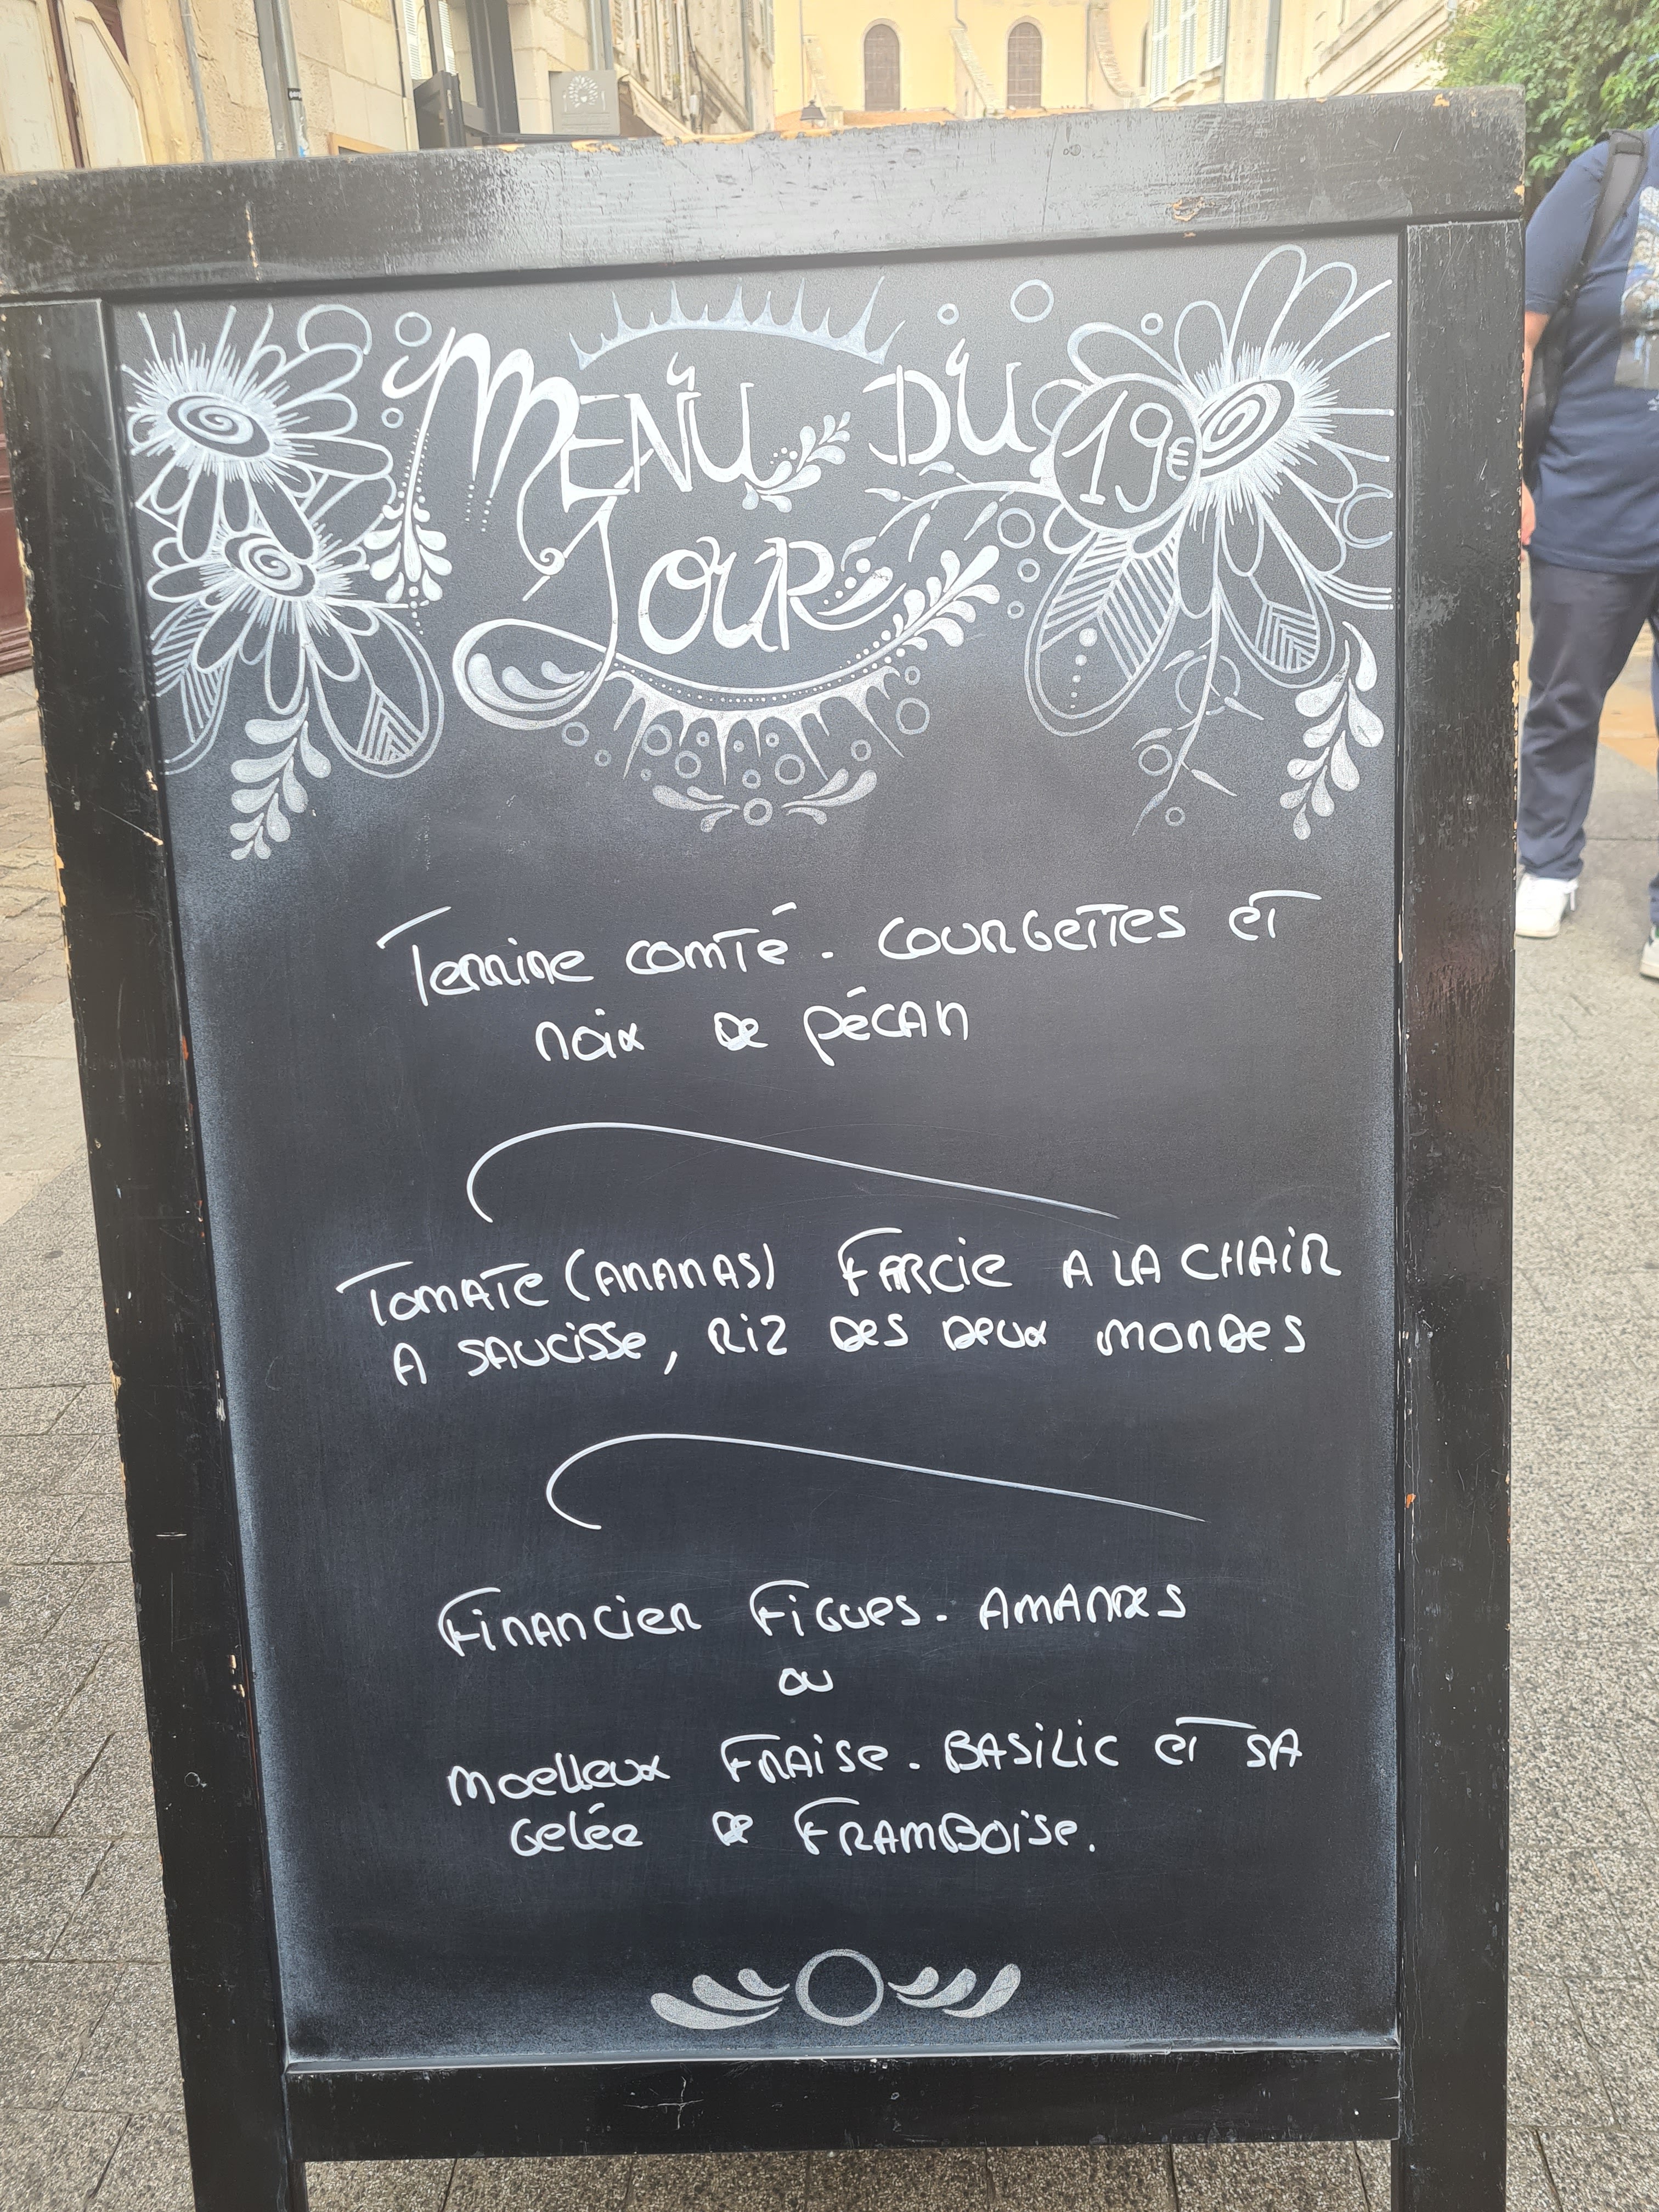 MENU DU
19€
JOUR
Terrine comté. COURGETTES ET
noix de pécan
TOMATE (ANANAS) FARCIE A LA CHAIR
A SAUCISSE, RIZ DES DEUX MONDES
FINANCIER FIGUES. AMANDES
OU
Moelleux FRAISE. BASILIC ET SA
Gelée de FRAMBOISE.